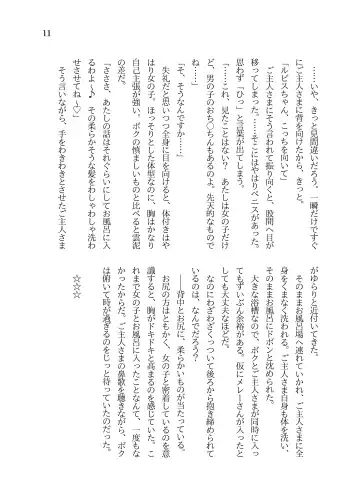 11
……いや、きっと見間違いだろう、一瞬だけですぐ
にご主人さまに背を向けたから、きっと。
「ルビスちゃん、こっちを向いて」
ご主人さまにそう言われて振り向くと、股間へ目が
移ってしまった。……そこにはやはりペニスがあった。
思わず「ひっ」と言葉が出てしまう。
「……これ、見たことはない？　あたしは女の子だけ
ど、男の子のおち〇ちんもあるのよ、先天的なもので
ね……」
「そ、そうなんですか……」
失礼だと思いつつ全身に目を向けると、体付きはや
はり女の子。ほっそりとした体型なのに、胸はかなり
自己主張が強い、ボクの慎ましいものと比べると雲泥
の差だ。
「ささ、あたしの話はそれぐらいにしてお風呂に入
るわよ～♪　その柔らかそうな髪をわしゃわしゃ洗わ
せさせてね～♡」
そう言いながら、手をわきわきとさせたご主人さま
がゆらりと近付いてきた。
そのままお風呂場へ連れていかれ、ご主人さまに全
身をくまなく洗われる。ご主人さま自身も体を洗い、
そのままお風呂にドボンと沈められた。
大きな浴槽なので、ボクとご主人さまが同時に入っ
てもずいぶん余裕がある。仮にメレーさんが入ったと
しても大丈夫なほどだ。
なのにわざわざくっついて後ろから抱き締められて
いるのは、なんでだろう？
――背中とお尻に、柔らかいものが当たっている。
お尻の方はともかく、女の子と密着しているのを意
識すると、胸がドキドキと高まるのを感じていた。こ
れまで女の子とお風呂に入ったことなんて、一度もな
かったからだ。ご主人さまの鼻歌を聴きながら、ボク
は俯いて時が過ぎるのをじっと待っていたのだった。
☆☆☆